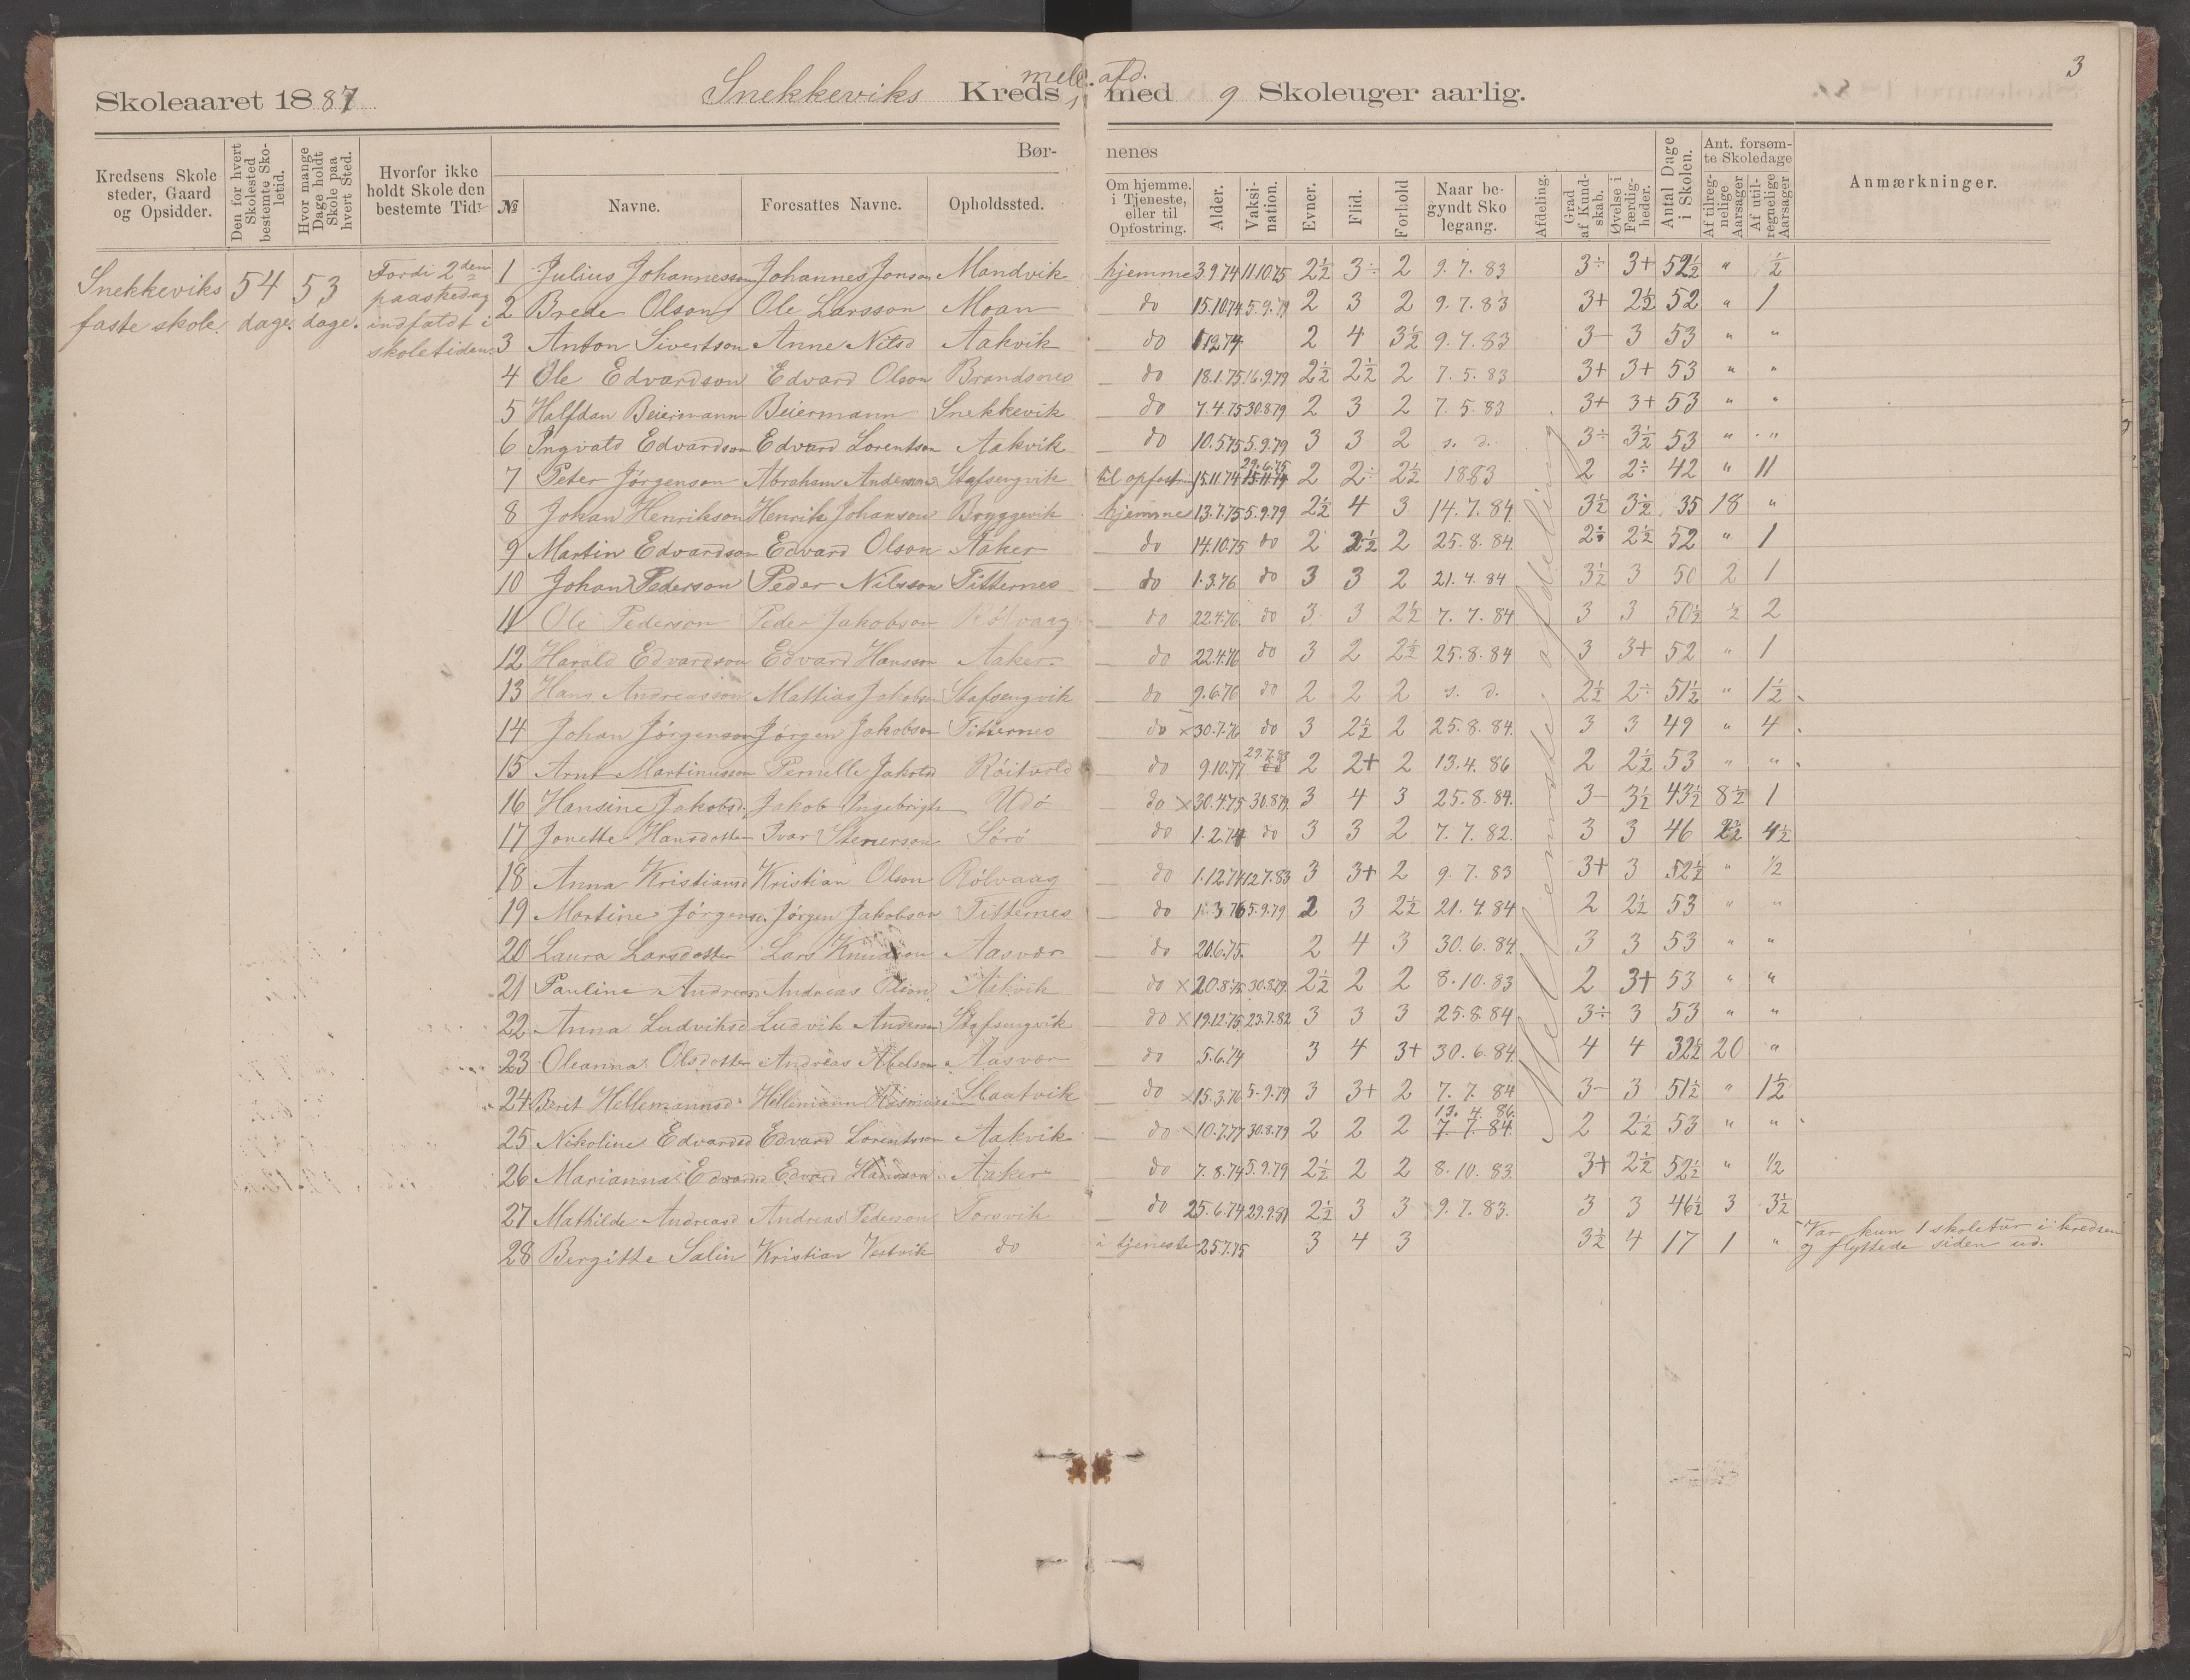 3
Skoleaaret 1887 Snekkeviks Kreds, mell. afd. med 9 Skoleuger aarlig.
Kredsens Skolesteder, Gaard og Opsidder. Den for hvert Skolested bestemte Skoletid. Hvor mange Dage holdt Skole paa hvert Sted. Hvorfor ikke holdt Skole den bestemte Tid?
Børnenes
№ Navne. Foresattes Navne. Opholdssted. Om hjemme, i Tjeneste, eller til Opfostring. Alder. Vaksination. Evner. Flid. Forhold Naar begyndt Skolegang. Afdeling. Grad af Kundskab. Øvelse i Færdigheder. Antal Dage i Skolen. Ant. forsømte Skoledage Af tilregnelige Aarsager Af utilregnelige Aarsager Anmærkninger.
Snekkeviks faste skole. 54 dage. 53 dage. Fordi 2den paaskedag indfaldt i skoletiden.
Mellemste afdeling
1 Julius Johannesson Johannes Jonson Mandvik hjemme 3.9.74 11.10.75 2½ 3÷ 2 9.7.83 3÷ 3+ 52½ " ½
2 Brede Olson Ole Larsson Moan do 15.10.74 5.9.79 2 3 2 9.7.83 3+ 2½ 52 " 1
3 Anton Sivertson Anne Nilsd Aakvik do 1.12.74 2 4 3½ 9.7.83 3- 3 53 " "
4 Ole Edvardson Edvard Olson Brandsnes do 18.1.75 16.9.79 2½ 2½ 2 7.5.83 3+ 3+ 53 " "
5 Halfdan Beiermann Beiermann Snekkevik do 7.4.75 30.8.79 2 3 2 7.5.83 3+ 3+ 53 " "
6 Ingvald Edvardson Edvard Lorentson Aakvik do 10.5.75 5.9.79 3 3 2 s. d. 3÷ 3½ 53 " "
7 Peter Jørgenson Abraham Anderson Stafsengvik til opfostring 15.11.74 29.6.75 15.11.74 2 2÷ 2½ 1883 2 2÷ 42 " 11
8 Johan Henrikson Henrik Johanson Bryggevik hjemme 13.7.75 5.9.79 2½ 4 3 14.7.84 3½ 3½ 35 18 "
9 Martin Edvardson Edvard Olson Aaker do 14.10.75 do 2 2½ 2 25.8.84. 2÷ 2½ 52 " 1
10 Johan Pederson Peder Nilsson Titternes do 1.3.76 do 3 3 2 21.4.84 3½ 3 50 2 1
11 Ole Pederson Peder Jakobson Rølvaag do 22.4.76. do 3 3 2½ 7.7.84 3 3 50½ ½ 2
12 Harald Edvardson Edvard Hansson Aaker do 22.4.76 do 3 2 2½ 25.8.84 3 3+ 52 " 1
13 Hans Andreasson Mattias Jakobson Stafsengvik do 9.6.76 do 2 2 2 s. d. 2½ 2÷ 51½ " 1½
14 Johan Jørgenson Jørgen Jakobson Titternes do × 30.7.76 do 3 2½ 2 25.8.84. 3 3 49 " 4
15 Arnt Martinusson Pernelle Jakobd Røitvold do 9.10.77 29.7.83 do 2 2+ 2 13.4.86 2 2½ 53 " "
16 Hansine Jakobsd. Jakob Ingebrigts Udø do × 30.4.75 30.8.79 3 4 3 25.8.84. 3- 3½ 43½ 8½ 1
17 Jonette Hansdotter Ivar Stenerson Sørø do 1.2.74 do 3 3 2 7.7.82. 3 3 46 2½ 4½
18 Anna Kristiansd Kristian Olson Rølvaag do 1.12.74 12.7.83 3 3+ 2 9.7.83 3+ 3 52½ " ½
19 Martine Jørgensd. Jørgen Jakobson Titternes do 1.3.76 5.9.79 2 3 2½ 21.4.84 2 2½ 53 " "
20 Laura Larsdotter Lars Knudson Aasvær do 20.6.75. 2 4 3 30.6.84. 3 3 53 " "
21 Pauline Andreasd Andreas Olson Aakvik do × 20.8.75 30.8.79. 2½ 2 2 8.10.83 2 3+ 53 " "
22 Anna Ludviksd Ludvik Anderson Stafsengvik do × 19.12.75 23.7.82 3 3 3 25.8.84. 3÷ 3 53 " "
23 Oleanna Olsdotter Andreas Abelson Aasvær do 5.6.74 3 4 3+ 30.6.84. 4 4 32½ 20 "
24 Berit Hellemannsd. Hellemann Rasmussen Slaatvik do × 15.3.76 5.9.79 3 3+ 2 7.7.84 3- 3 51½ " 1½
25 Nikoline Edvardsd Edvard Lorentson Aakvik do × 10.7.77 30.8.79 2 2 2 13.4.86. 7.7.84. 2 2½ 53 " "
26 Marianna Edvardsd Edvard Hansson Aaker do 7.8.74 5.9.79 2½ 2 2 8.10.83. 3+ 2½ 52½ " ½
27 Mathilde Andreasd Andreas Pederson Torsvik do 25.6.74 29.9.81 2½ 3 3 9.7.83. 3 3 46½ 3 3½
28 Bergitte Salin Kristian Vestvik do i tjeneste 25.7.75 3 4 3 3½ 4 17 1 " Var kun 1 skoletur i kredsen
og flyttede siden ud.